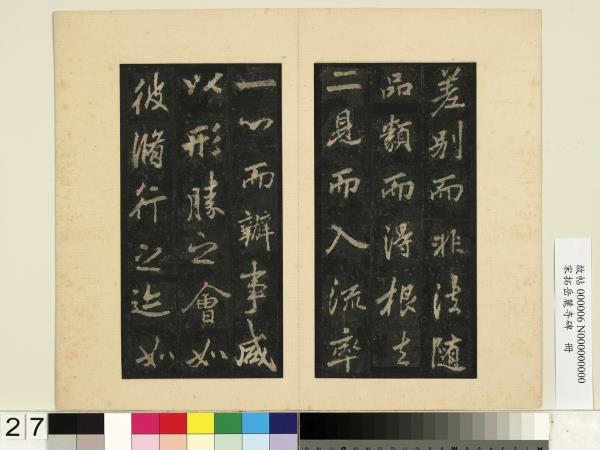 差別而非法隨
品類而得根去
二見而入流率
一心而辦事咸
以形勝之會如
彼脩行之迹如
故帖 000006 N000000000
宋拓岳麓寺碑 冊
27